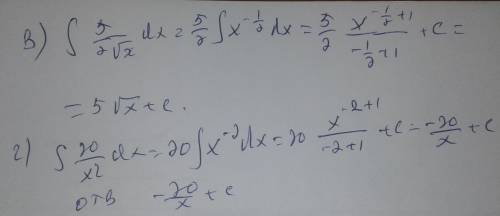 в) ∫ 5/(2√x) dx = 5/2 ∫ x^(-1/2) dx = 5/2 x^(-1/2+1)/(-1/2+1) + c =
= 5√x + c.
г) ∫ 20/x² dx = 20 ∫ x^(-2) dx = 20 x^(-2+1)/(-2+1) + c = -20/x + c
отв -20/x + c